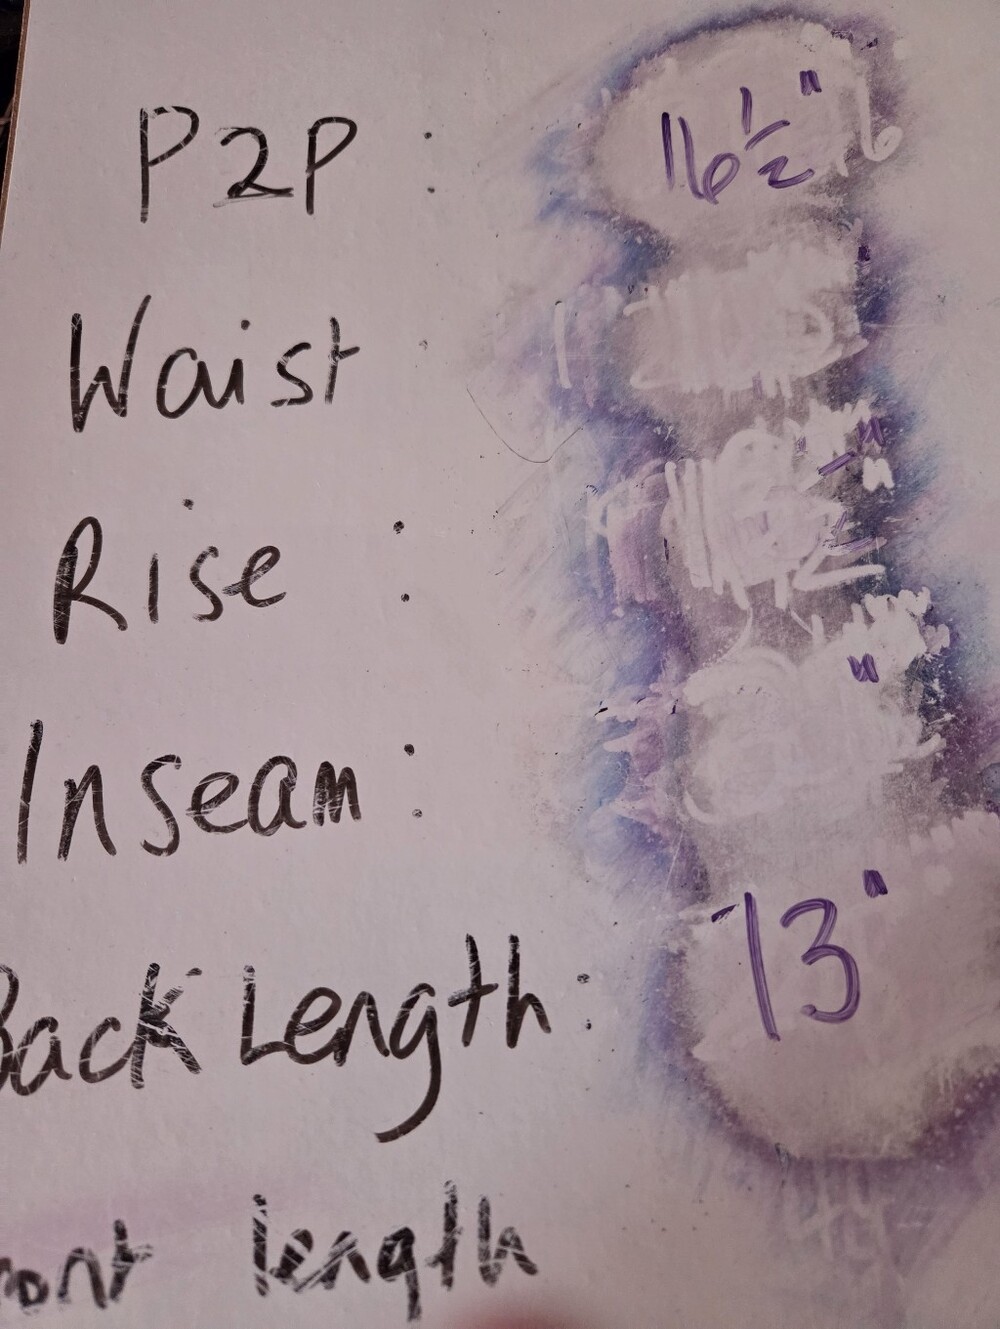 P2P : 16 1/2"
Waist :
Rise : "
Inseam : "
Back Length : 13"
length